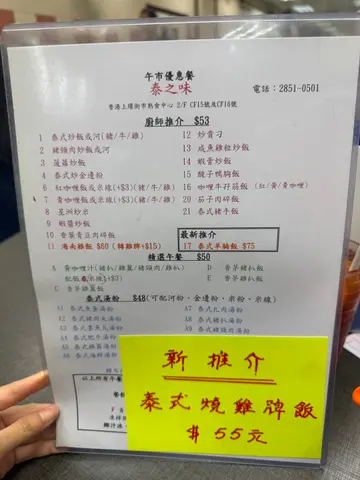 午市優惠餐
泰之味
電話：2851-0501
香港上環街市熟食中心 2/F CF15號及CF16號
廚師推介 $53
1 泰式炒飯或河(豬/牛/雞)
2 豬頸肉炒飯或河
3 菠蘿炒飯
4 泰式炒金邊粉
6 紅咖喱飯或米線(+$3)(豬/牛/雞)
7 青咖喱飯或米線(+$3)(豬/牛/雞)
8 星洲炒米
9 蝦醬炒飯
10 香葉青豆肉碎飯
11 海南雞飯 $60 (轉雞髀+$15)
12 炒貴刁
13 咸魚雞粒炒飯
14 蝦膏炒飯
15 酸子鴨胸飯
16 咖喱牛孖筋飯 (紅/黃/青咖喱)
20 茄子肉碎飯
21 泰式豬手飯
最新推介
17 泰式羊腩飯 $75
精選午餐 $50
A 青咖喱汁(豬扒/雞翼/豬頸肉/雞扒)
配飯或米線(+$3)
C 香茅雞翼飯
D 香茅豬扒飯
E 香茅雞扒飯
泰式湯粉 $48(可配河粉、金邊粉、米粉、米線)
A1 泰式魚蛋湯粉
A2 泰式豬肉丸湯粉
A3 泰式墨魚丸湯粉
A4 泰式肥牛湯粉
A5 泰式雞翼湯粉
A6 泰式海鮮湯粉
A7 泰式扎肉湯粉
A8 泰式豬扒湯粉
A9 泰式豬頸肉湯粉
以上所有午餐
新推介
泰式燒雞脾飯
$55元